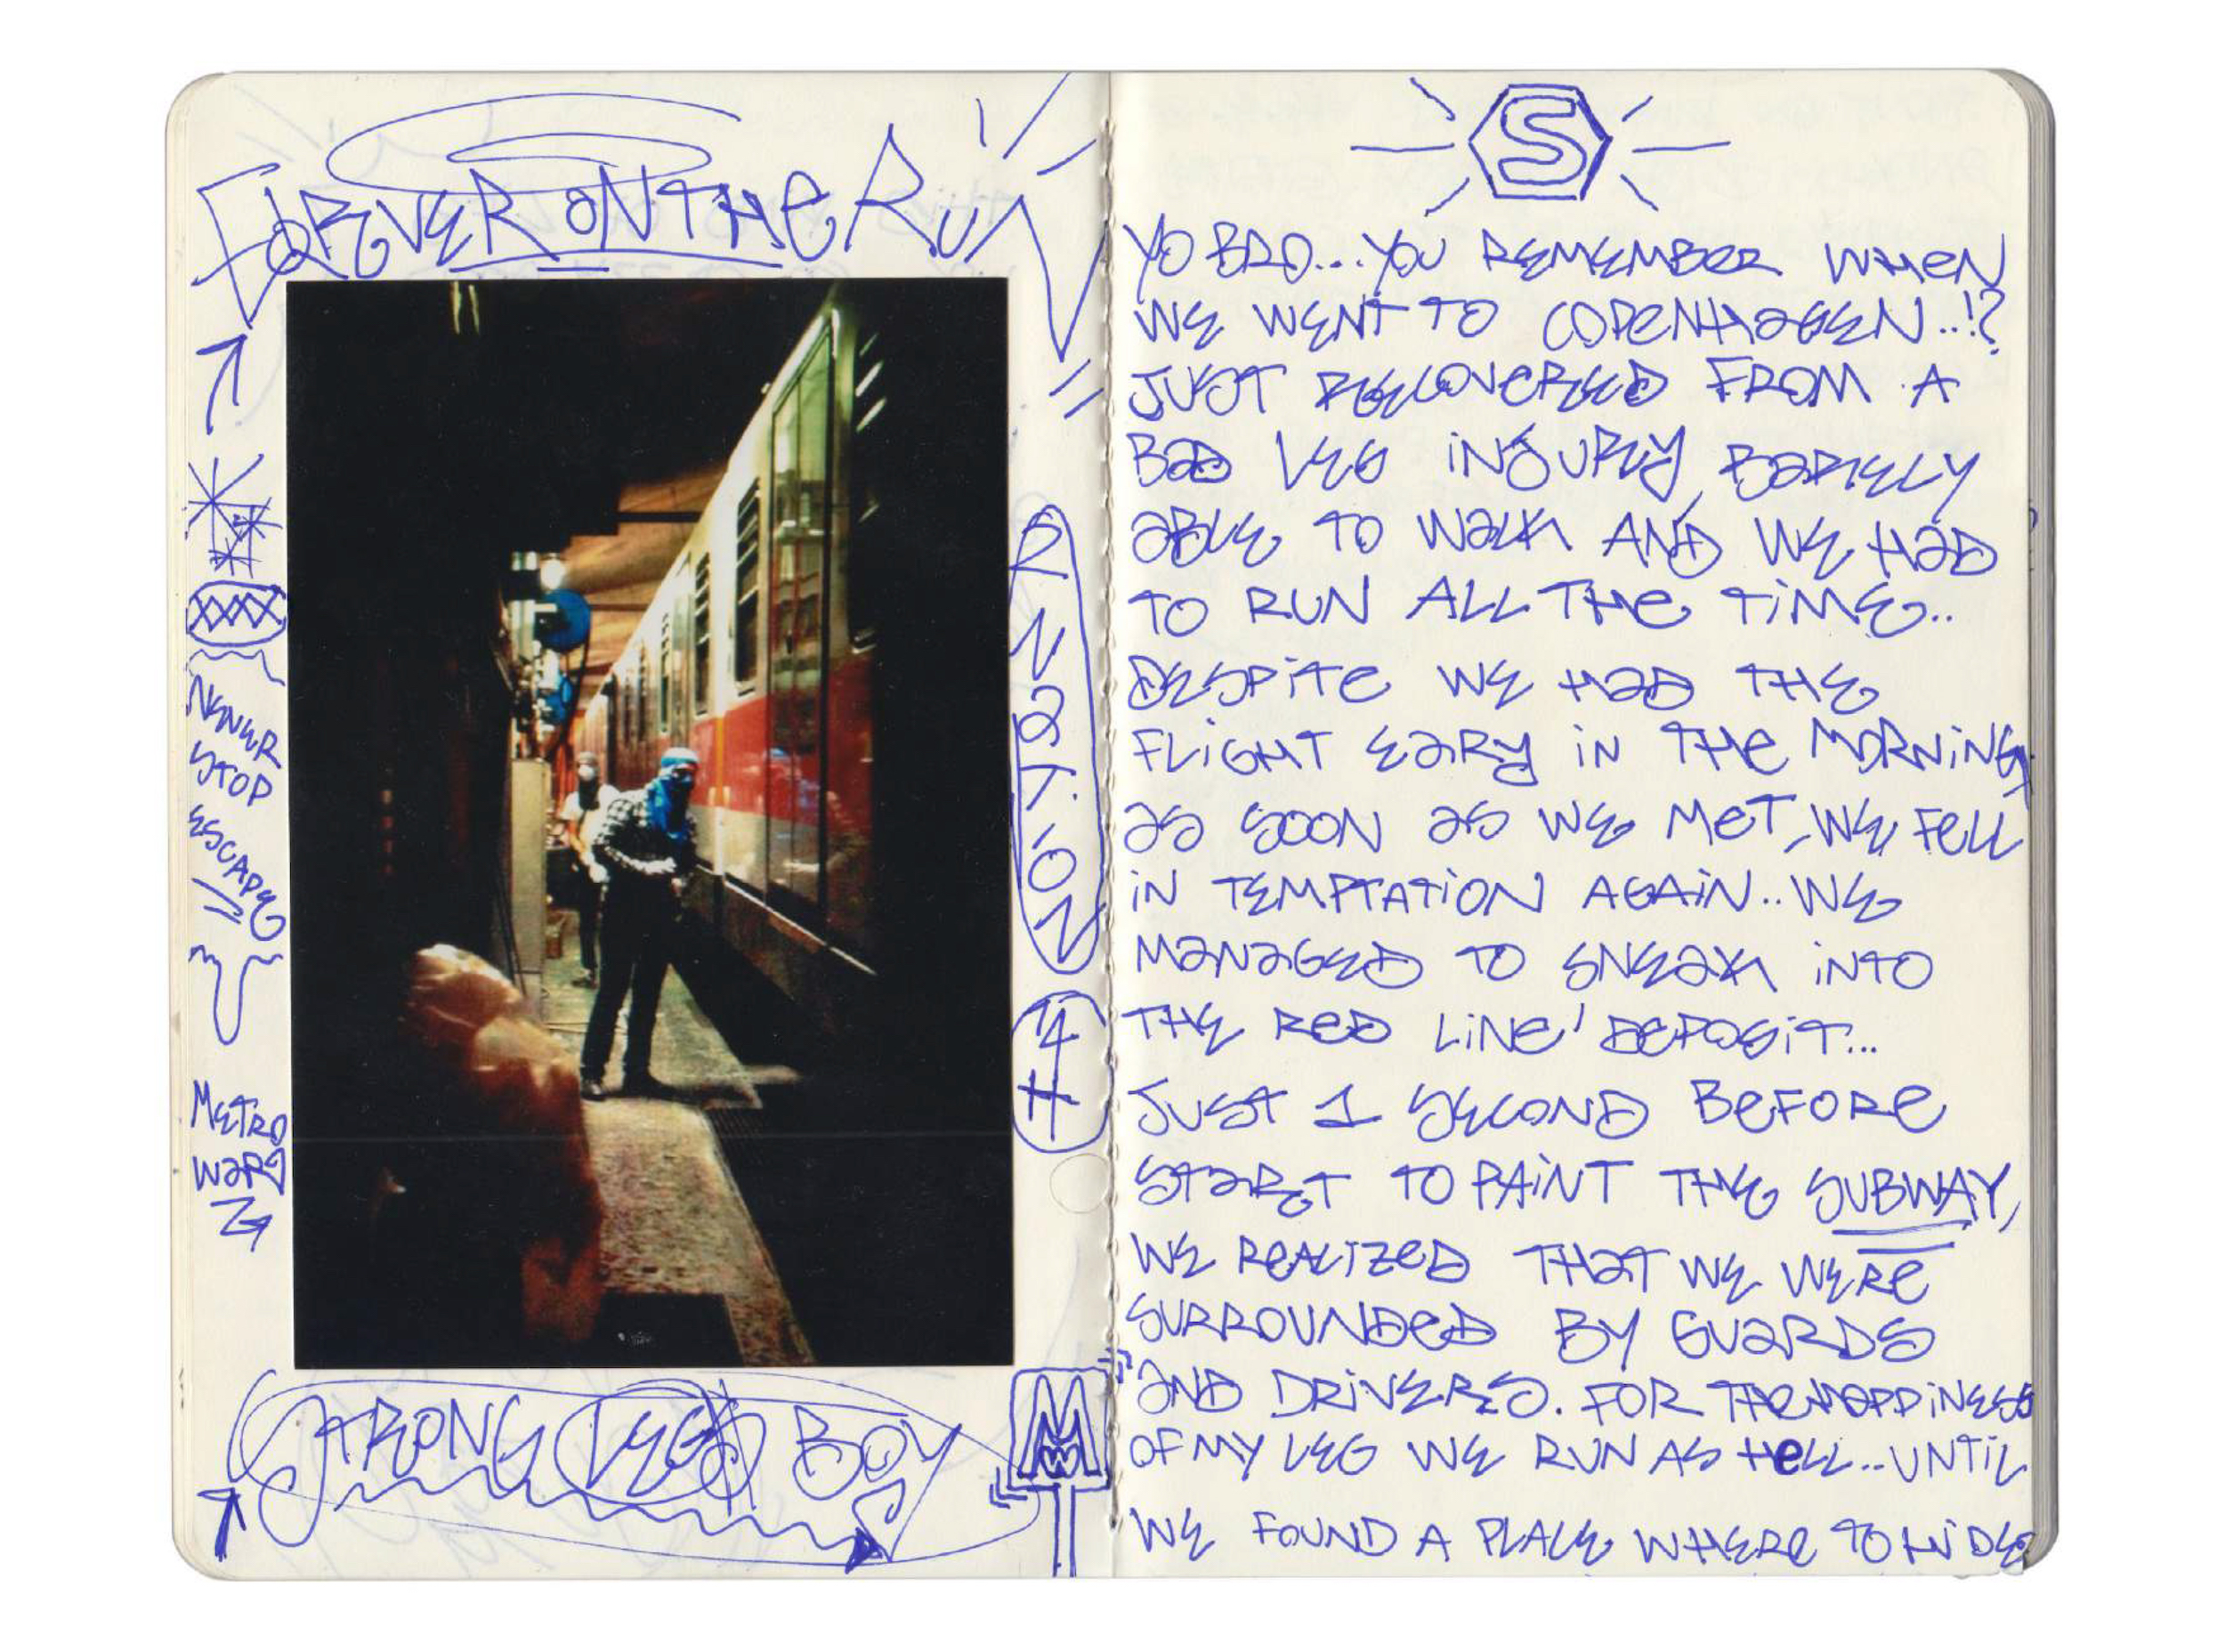 FOREVER ON THE RUN
NEVER
STOP
ESCAPE
METRO
WARZ
STRONG LEGS BOY
M
S
YO BRO...YOU REMEMBER WHEN
WE WENT TO COPENHAGEN..!?
JUST RECOVERED FROM A
BAD LEG INJURY, BARELY
ABLE TO WALK AND WE HAD
TO RUN ALL THE TIME..
DESPITE WE HAD THE
FLIGHT EARY IN THE MORNING
AS SOON AS WE MET, WE FELL
IN TEMPTATION AGAIN.. WE
MANAGED TO SNEAK INTO
THE RED LINE' DEPOSIT...
JUST 1 SECOND BEFORE
START TO PAINT THE SUBWAY,
WE REALIZED THAT WE WERE
SURROUNDED BY GUARDS
AND DRIVERS. FOR THE HAPPINESS
OF MY LEG WE RUN AS HELL.. UNTIL
WE FOUND A PLACE WHERE TO HIDE